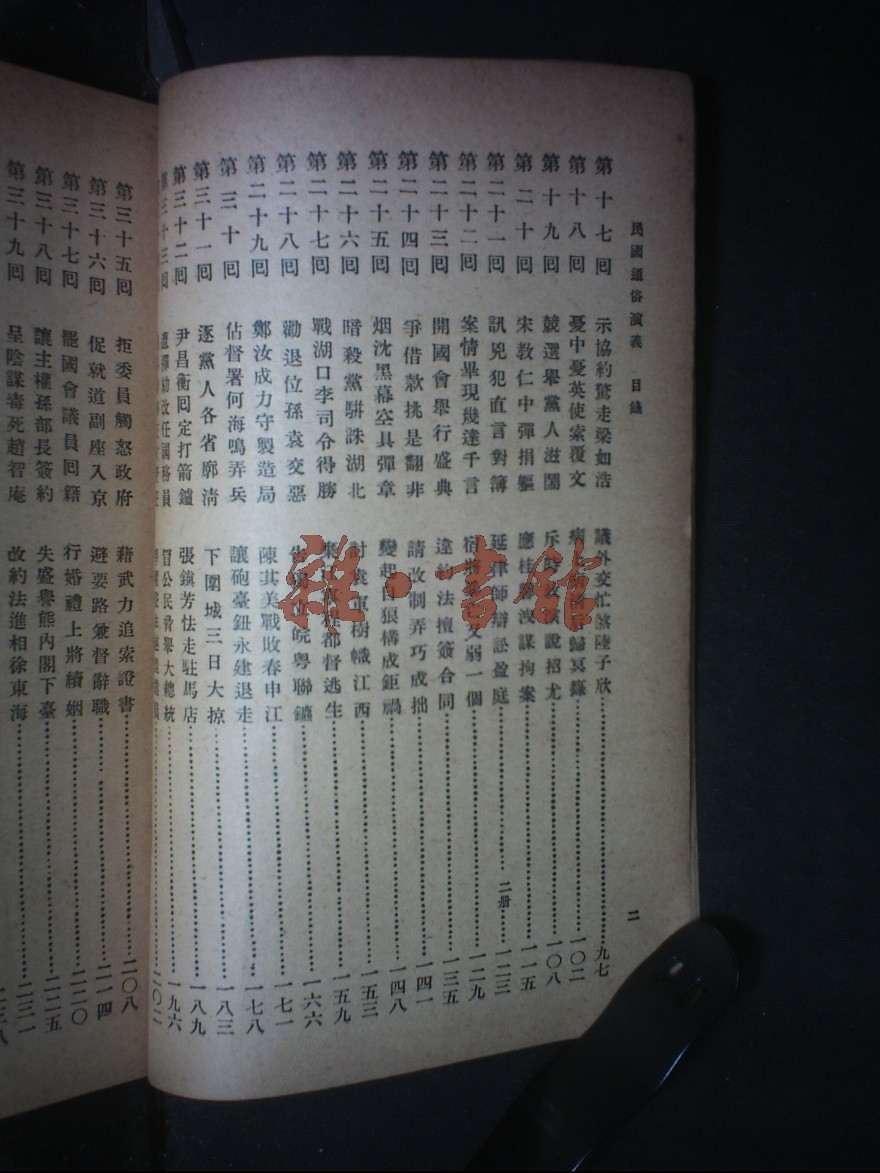 民國通俗演義 目錄 二
第十七回 示協約驚走梁如浩 議外交忙煞陸子欣 九七
第十八回 憂中憂英使索覆文 病 歸冥籙 一〇二
第十九回 競選舉黨人滋鬧 斥時政演說招尤 一〇八
第二十回 宋教仁中彈捐軀 應桂馨洩謀拘案 一一五
第二十一回 訊兇犯直言對簿 延律師辯訟盈庭 二册 一二三
第二十二回 案情畢現幾達千言 宿 又弱一個 一二九
第二十三回 開國會舉行盛典 違約法擅簽合同 一三五
第二十四回 爭借款挑是翻非 請改制弄巧成拙 一四一
第二十五回 烟沈黑幕空具彈章 變起白狼構成鉅禍 一四八
第二十六回 暗殺黨駢誅湖北 討袁軍樹幟江西 一五三
第二十七回 戰湖口李司令得勝 程都督逃生 一五九
第二十八回 勸退位孫袁交惡 告 皖粵聯鑣 一六六
第二十九回 鄭汝成力守製造局 陳其美戰敗春申江 一七一
第三十回 佔督署何海鳴弄兵 讓砲臺鈕永建退走 一七八
第三十一回 逐黨人各省廓清 下圍城三日大掠 一八三
第三十二回 尹昌衡回定打箭鑪 張鎭芳怯走駐馬店 一八九
第三十三回 改任國務員 冒公民脅舉大總統 一九六
二〇二
第三十五回 拒委員觸怒政府 藉武力追索證書 二〇八
第三十六回 促就道副座入京 避要路兼督辭職 二一四
第三十七回 罷國會議員回籍 行婚禮上將續姻 二二〇
第三十八回 讓主權孫部長簽約 失盛譽熊內閣下臺 二二五
第三十九回 呈陰謀毒死趙智庵 改約法進相徐東海 二三一
雜·書館